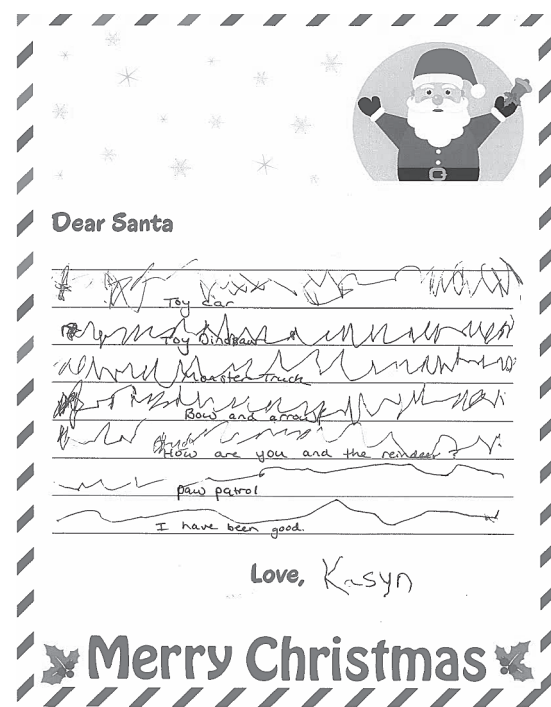 Dear Santa
Toy car
Toy Dinosaur
Monster Truck
Bow and arrow
How are you and the reindeer?
paw patrol
I have been good.
Love, Krsyn
Merry Christmas